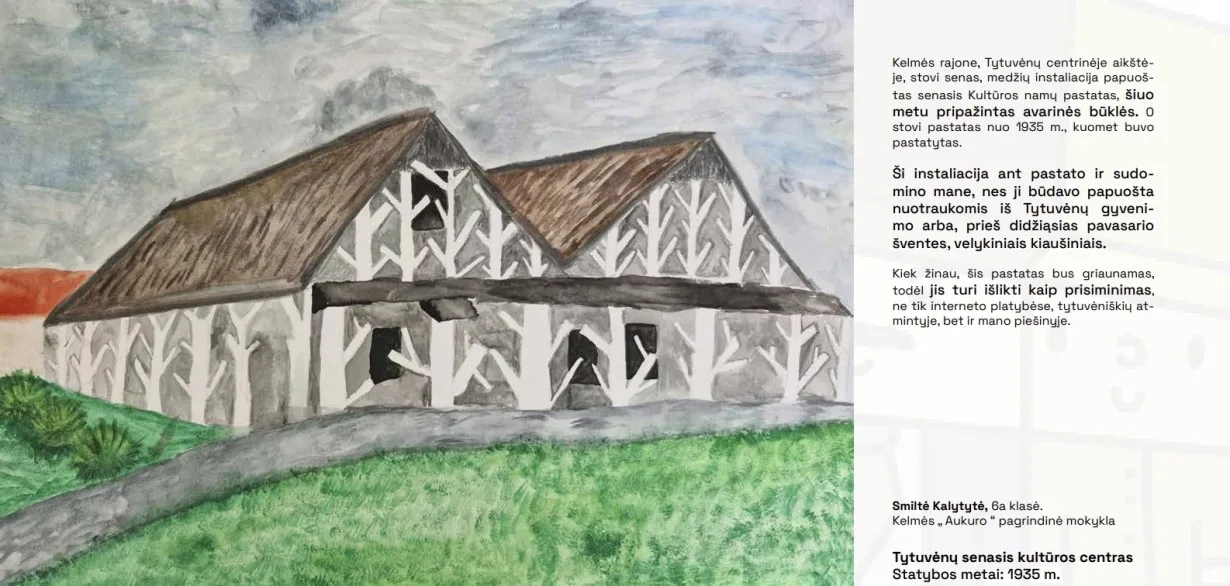 Kelmės rajone, Tytuvėnų centrinėje aikštė-
je, stovi senas, medžių instaliacija papuoš-
tas senasis Kultūros namų pastatas, šiuo
metu pripažintas avarinės būklės. O
stovi pastatas nuo 1935 m., kuomet buvo
pastatytas.
Ši instaliacija ant pastato ir sudo-
mino mane, nes ji būdavo papuošta
nuotraukomis iš Tytuvėnų gyveni-
mo arba, prieš didžiąsias pavasario
šventes, velykiniais kiaušiniais.
Kiek žinau, šis pastatas bus griaunamas,
todėl jis turi išlikti kaip prisiminimas,
ne tik interneto platybėse, tytuvėniškių at-
mintyje, bet ir mano piešinyje.
Smiltė Kalytytė, 6a klasė.
Kelmės „ Aukuro “ pagrindinė mokykla
Tytuvėnų senasis kultūros centras
Statybos metai: 1935 m.